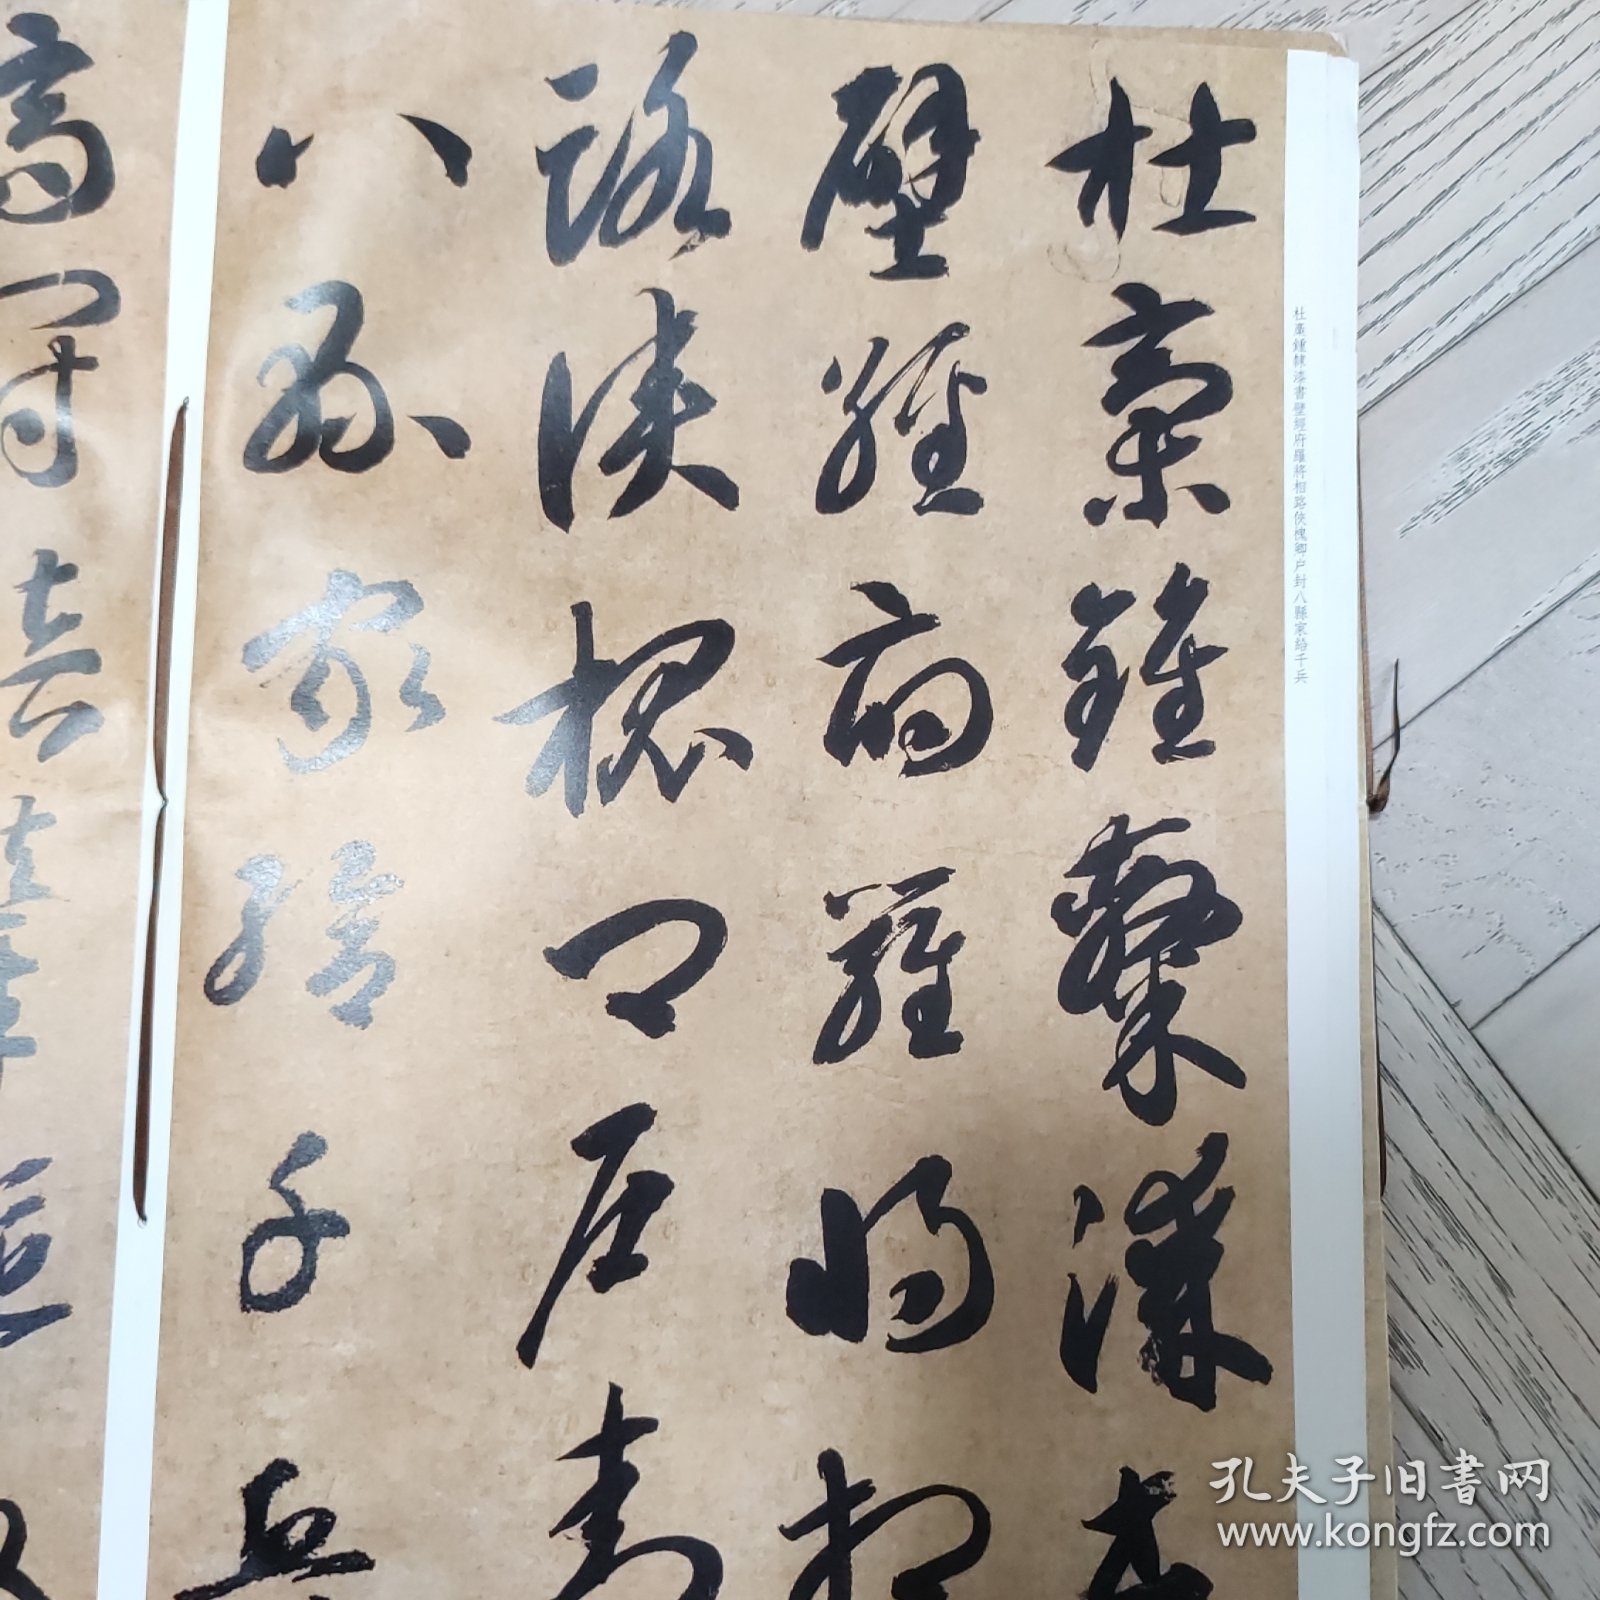 杜稾鍾隸漆書
壁經府羅將相
路俠槐卿户封
八縣家給千兵
高冠
杜稾鍾隸漆書壁經府羅將相路俠槐卿户封八縣家給千兵
孔夫子旧书网
www.kongfz.com